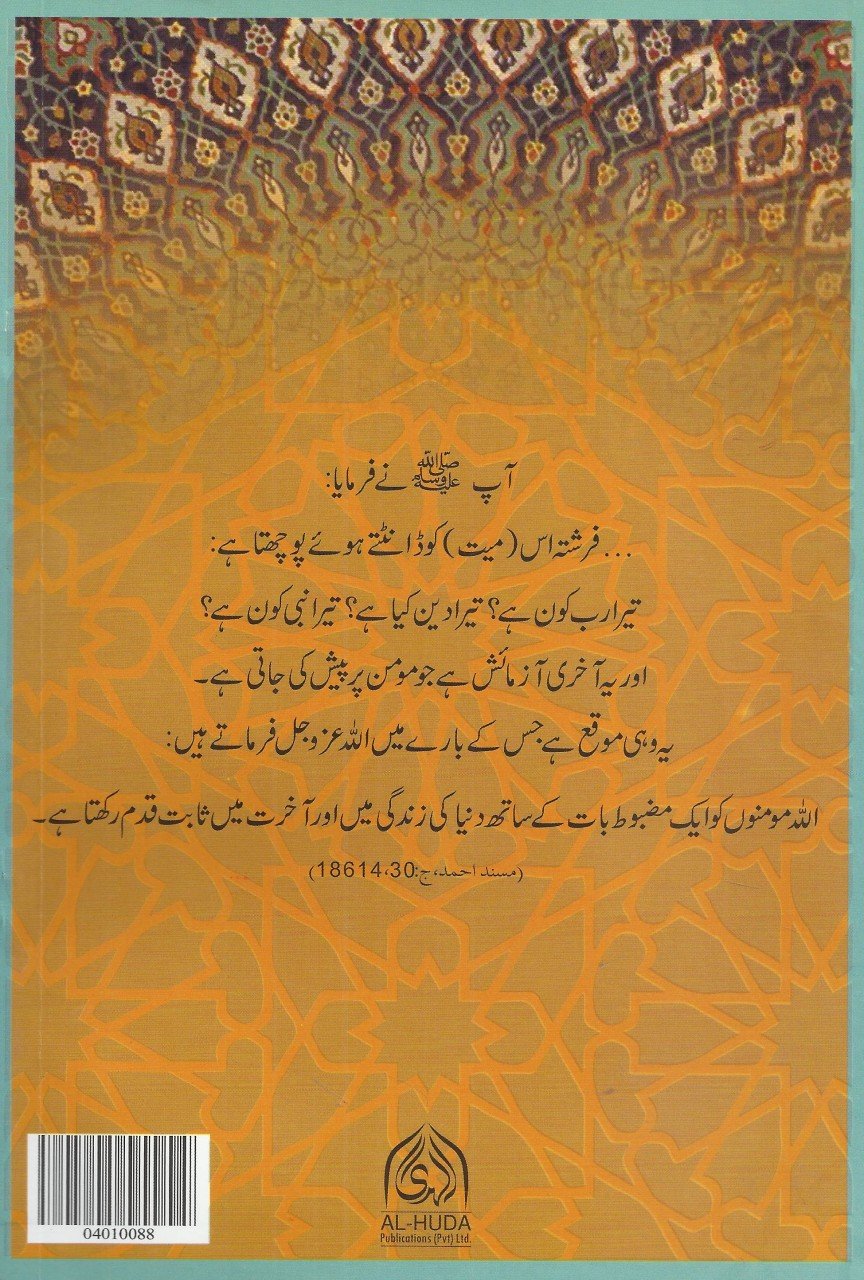 آپ ﷺ نے فرمایا:
...فرشتہ اس (میت) کو ڈانٹتے ہوئے پوچھتا ہے:
تیرا رب کون ہے؟ تیرا دین کیا ہے؟ تیرا نبی کون ہے؟
اور یہ آخری آزمائش ہے جو مومن پر پیش کی جاتی ہے۔
یہ وہی موقع ہے جس کے بارے میں اللہ عزوجل فرماتے ہیں:
اللہ مومنوں کو ایک مضبوط بات کے ساتھ دنیا کی زندگی میں اور آخرت میں ثابت قدم رکھتا ہے۔
(مسند احمد، ج:30، 18614)
الہدی
AL-HUDA
Publications (Pvt) Ltd.
04010088